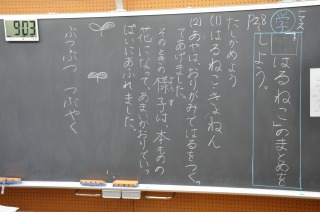 903
P28
学
「はるねこ」のまとめを
しよう。
たしかめよう
(1) はるねこ きょねん
(2) あやは、おりがみではるをつくっ
てあげました。
そのときの様子は、本ものの
花になって、あまいかおりでいっ
ぱいにあふれました。
ぶつぶつ つぶやく